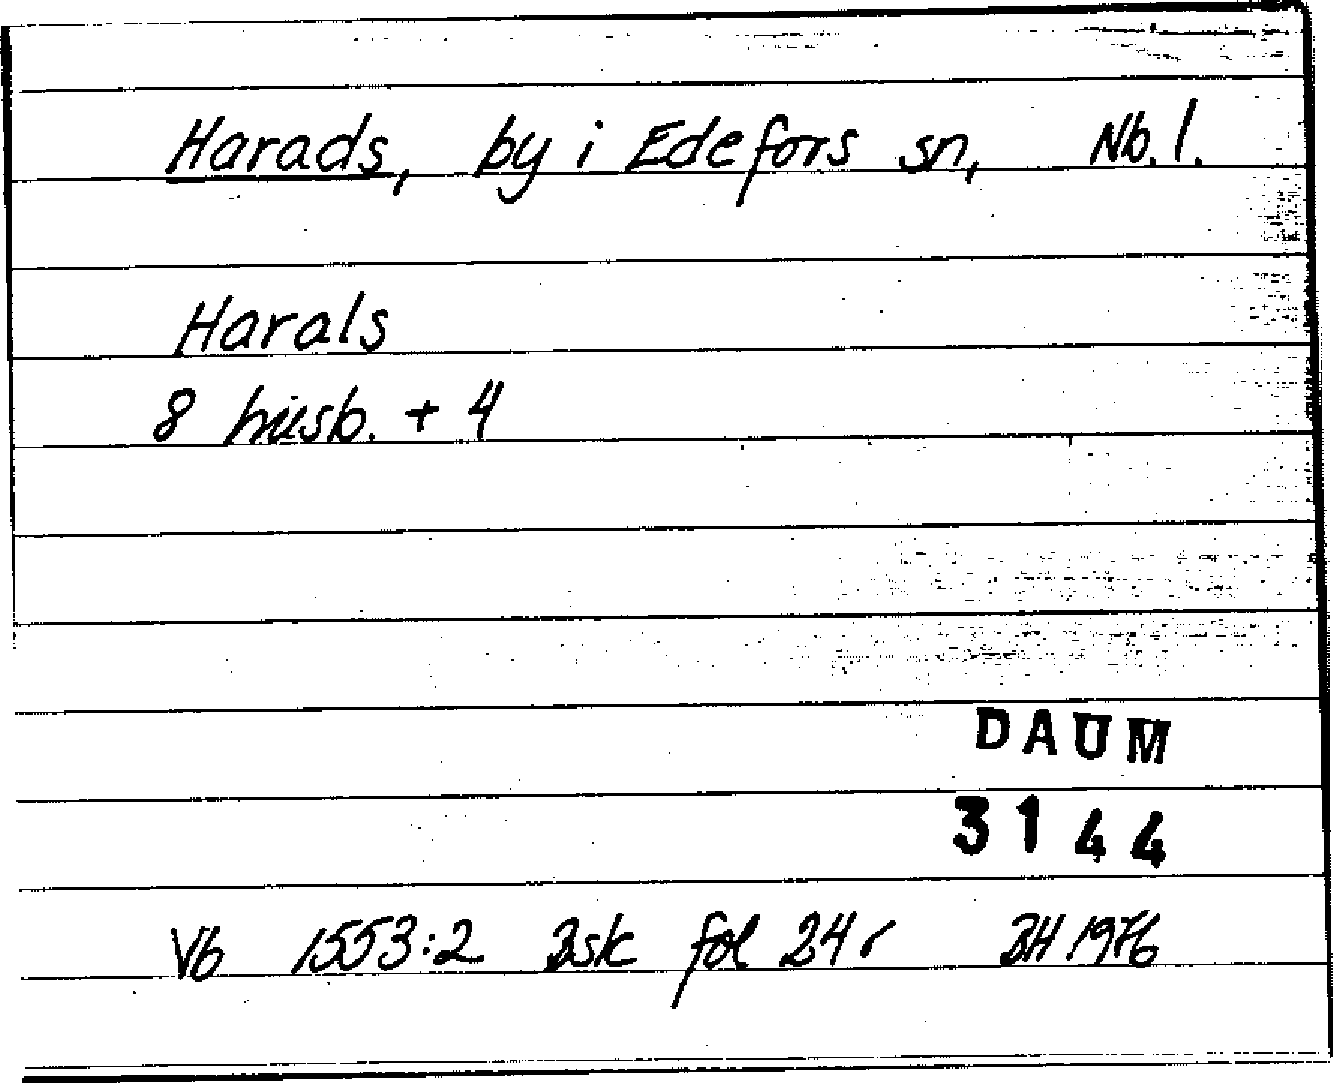 Harads, by i Edefors sn, Nb. l.
Harals
8 husb. + 4
DAUM
3144
Vb 1553:2 Bsk fol 24 r BH 1976